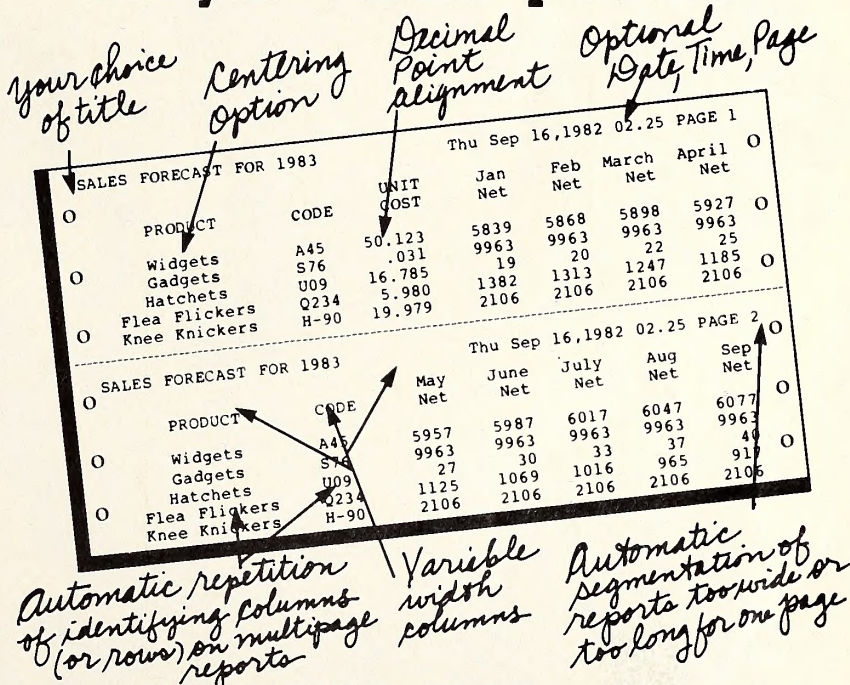 Your choice
of title
Centering
Option
Decimal
Point
alignment
Optional
Date, Time, Page
SALES FORECAST FOR 1983 Thu Sep 16,1982 02.25 PAGE 1
UNIT Jan Feb March April
PRODUCT CODE COST Net Net Net Net
Widgets A45 50.123 5839 5868 5898 5927
Gadgets S76 .031 9963 9963 9963 9963
Hatchets U09 16.785 19 20 22 25
Flea Flickers Q234 5.980 1382 1313 1247 1185
Knee Knickers H-90 19.979 2106 2106 2106 2106
SALES FORECAST FOR 1983 Thu Sep 16,1982 02.25 PAGE 2
May June July Aug Sep
PRODUCT CODE Net Net Net Net Net
Widgets A45 5957 5987 6017 6047 6077
Gadgets S76 9963 9963 9963 9963 9963
Hatchets U09 27 30 33 37 40
Flea Flickers Q234 1125 1069 1016 965 917
Knee Knickers H-90 2106 2106 2106 2106 2106
Automatic repetition
of identifying columns
(or rows) on multipage
reports
Variable
width
columns
Automatic
segmentation of
reports too wide or
too long for one page